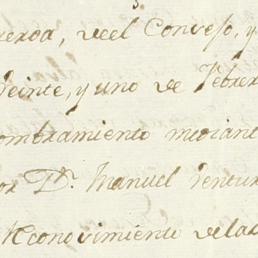 ueroa, deel Consejo, y
Veinte, y uno de Febrer
ombramiento mediant
or D.n Manuel Ventur
Reconocimiento dela